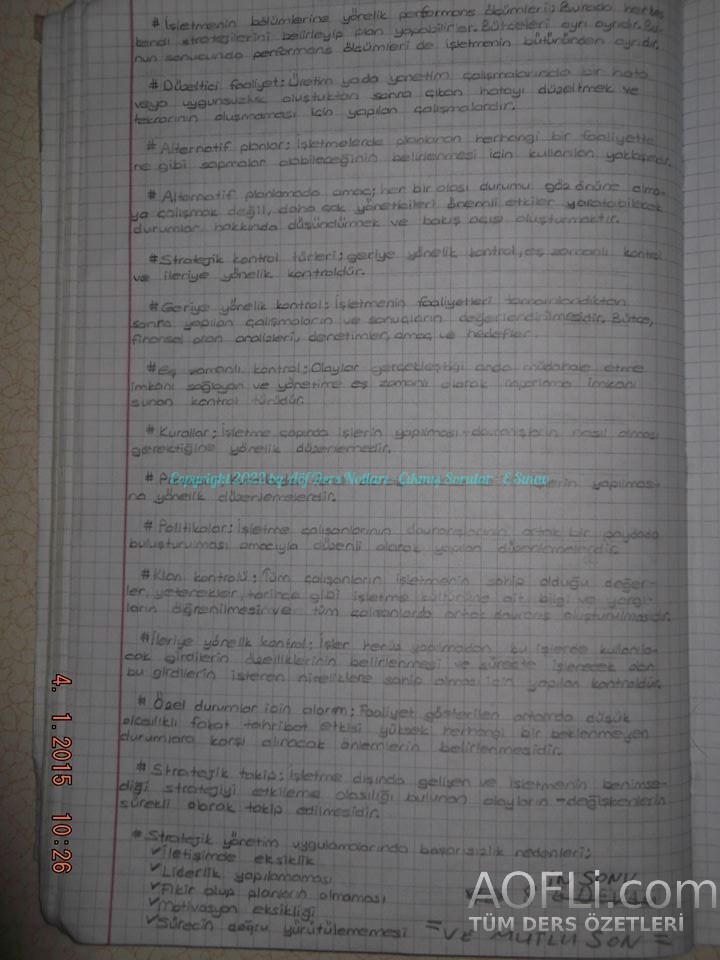 # İşletmenin bölümlerine yönelik performans ölçümleri; Burada herkes
kendi stratejilerini belirleyip plan yapabilirler. Bütçeleri ayrı ayrıdır. Bu-
nun sonucunda performans ölçümleri de işletmenin bütününden ayrıdır.
# Düzeltici faaliyet: Üretim yada yönetim çalışmalarında bir hata
veya uygunsuzluk oluştuktan sonra çıkan hatayı düzeltmek ve
tekrarının oluşmaması için yapılan çalışmalardır.
# Alternatif planlar: İşletmelerde planlanan herhangi bir faaliyette
ne gibi sapmalar olabileceğinin belirlenmesi için kullanılan yaklaşımdır.
# Alternatif planlamada amaç; her bir olası durumu göz önüne alma-
ya çalışmak değil, daha çok yöneticileri önemli etkiler yaratabilecek
durumlar hakkında düşündürmek ve bakış açısı oluşturmaktır.
# Stratejik kontrol türleri; geriye yönelik kontrol, eş zamanlı kontrol
ve ileriye yönelik kontroldür.
# Geriye yönelik kontrol: İşletmenin faaliyetleri tamamlandıktan
sonra yapılan çalışmaların ve sonuçların değerlendirilmesidir. Bütçe,
finansal oran analizleri, denetimler, amaç ve hedefler.
# eş zamanlı kontrol: Olaylar gerçekleştiği anda müdahale etme
imkanı sağlayan ve yönetime eş zamanlı olarak raporlama imkanı
sunan kontrol türüdür.
# Kurallar: İşletme çapında işlerin yapılması-davranışların nasıl olması
gerektiğine yönelik düzenlemedir.
Copyright 2020 by Aöf Ders Notları - Çıkmış Sorular - E Sınav
yapılması-
na yönelik düzenlemelerdir.
# Politikalar: İşletme çalışanlarının davranışlarının ortak bir paydada
buluşturulması amacıyla düzenli olarak yapılan düzenlemelerdir.
# Klan kontrolü: Tüm çalışanların işletmenin sahip olduğu değer-
ler, yetenekler, tarihçe gibi işletme kültürüne ait bilgi ve yargı-
ların öğrenilmesi ve tüm çalışanlarda ortak davranış oluşturulmasıdır.
# İleriye yönelik kontrol: İşler henüz yapılmadan bu işlerde kullanıla-
cak girdilerin özelliklerinin belirlenmesi ve süreçte işlenecek olan
bu girdilerin istenen niteliklere sahip olması için yapılan kontroldür.
# Özel durumlar için alarm: Faaliyet gösterilen ortamda düşük
olasılıklı fakat tahribat etkisi yüksek herhangi bir beklenmeyen
durumlara karşı alınacak önlemlerin belirlenmesidir.
# Stratejik takip: İşletme dışında gelişen ve işletmenin benimse-
diği stratejiyi etkileme olasılığı bulunan olayların-değişkenlerin
sürekli olarak takip edilmesidir.
# Stratejik yönetim uygulamalarında başarısızlık nedenleri:
✓ İletişimde eksiklik
✓ Liderlik yapılamaması
✓ Fikir olup planların olmaması
✓ Motivasyon eksikliği
✓ Sürecin doğru yürütülememesi
SONU
= VE MUTLU SON =
AOFLi.com
TÜM DERS ÖZETLERİ
4. 1. 2015 10:26